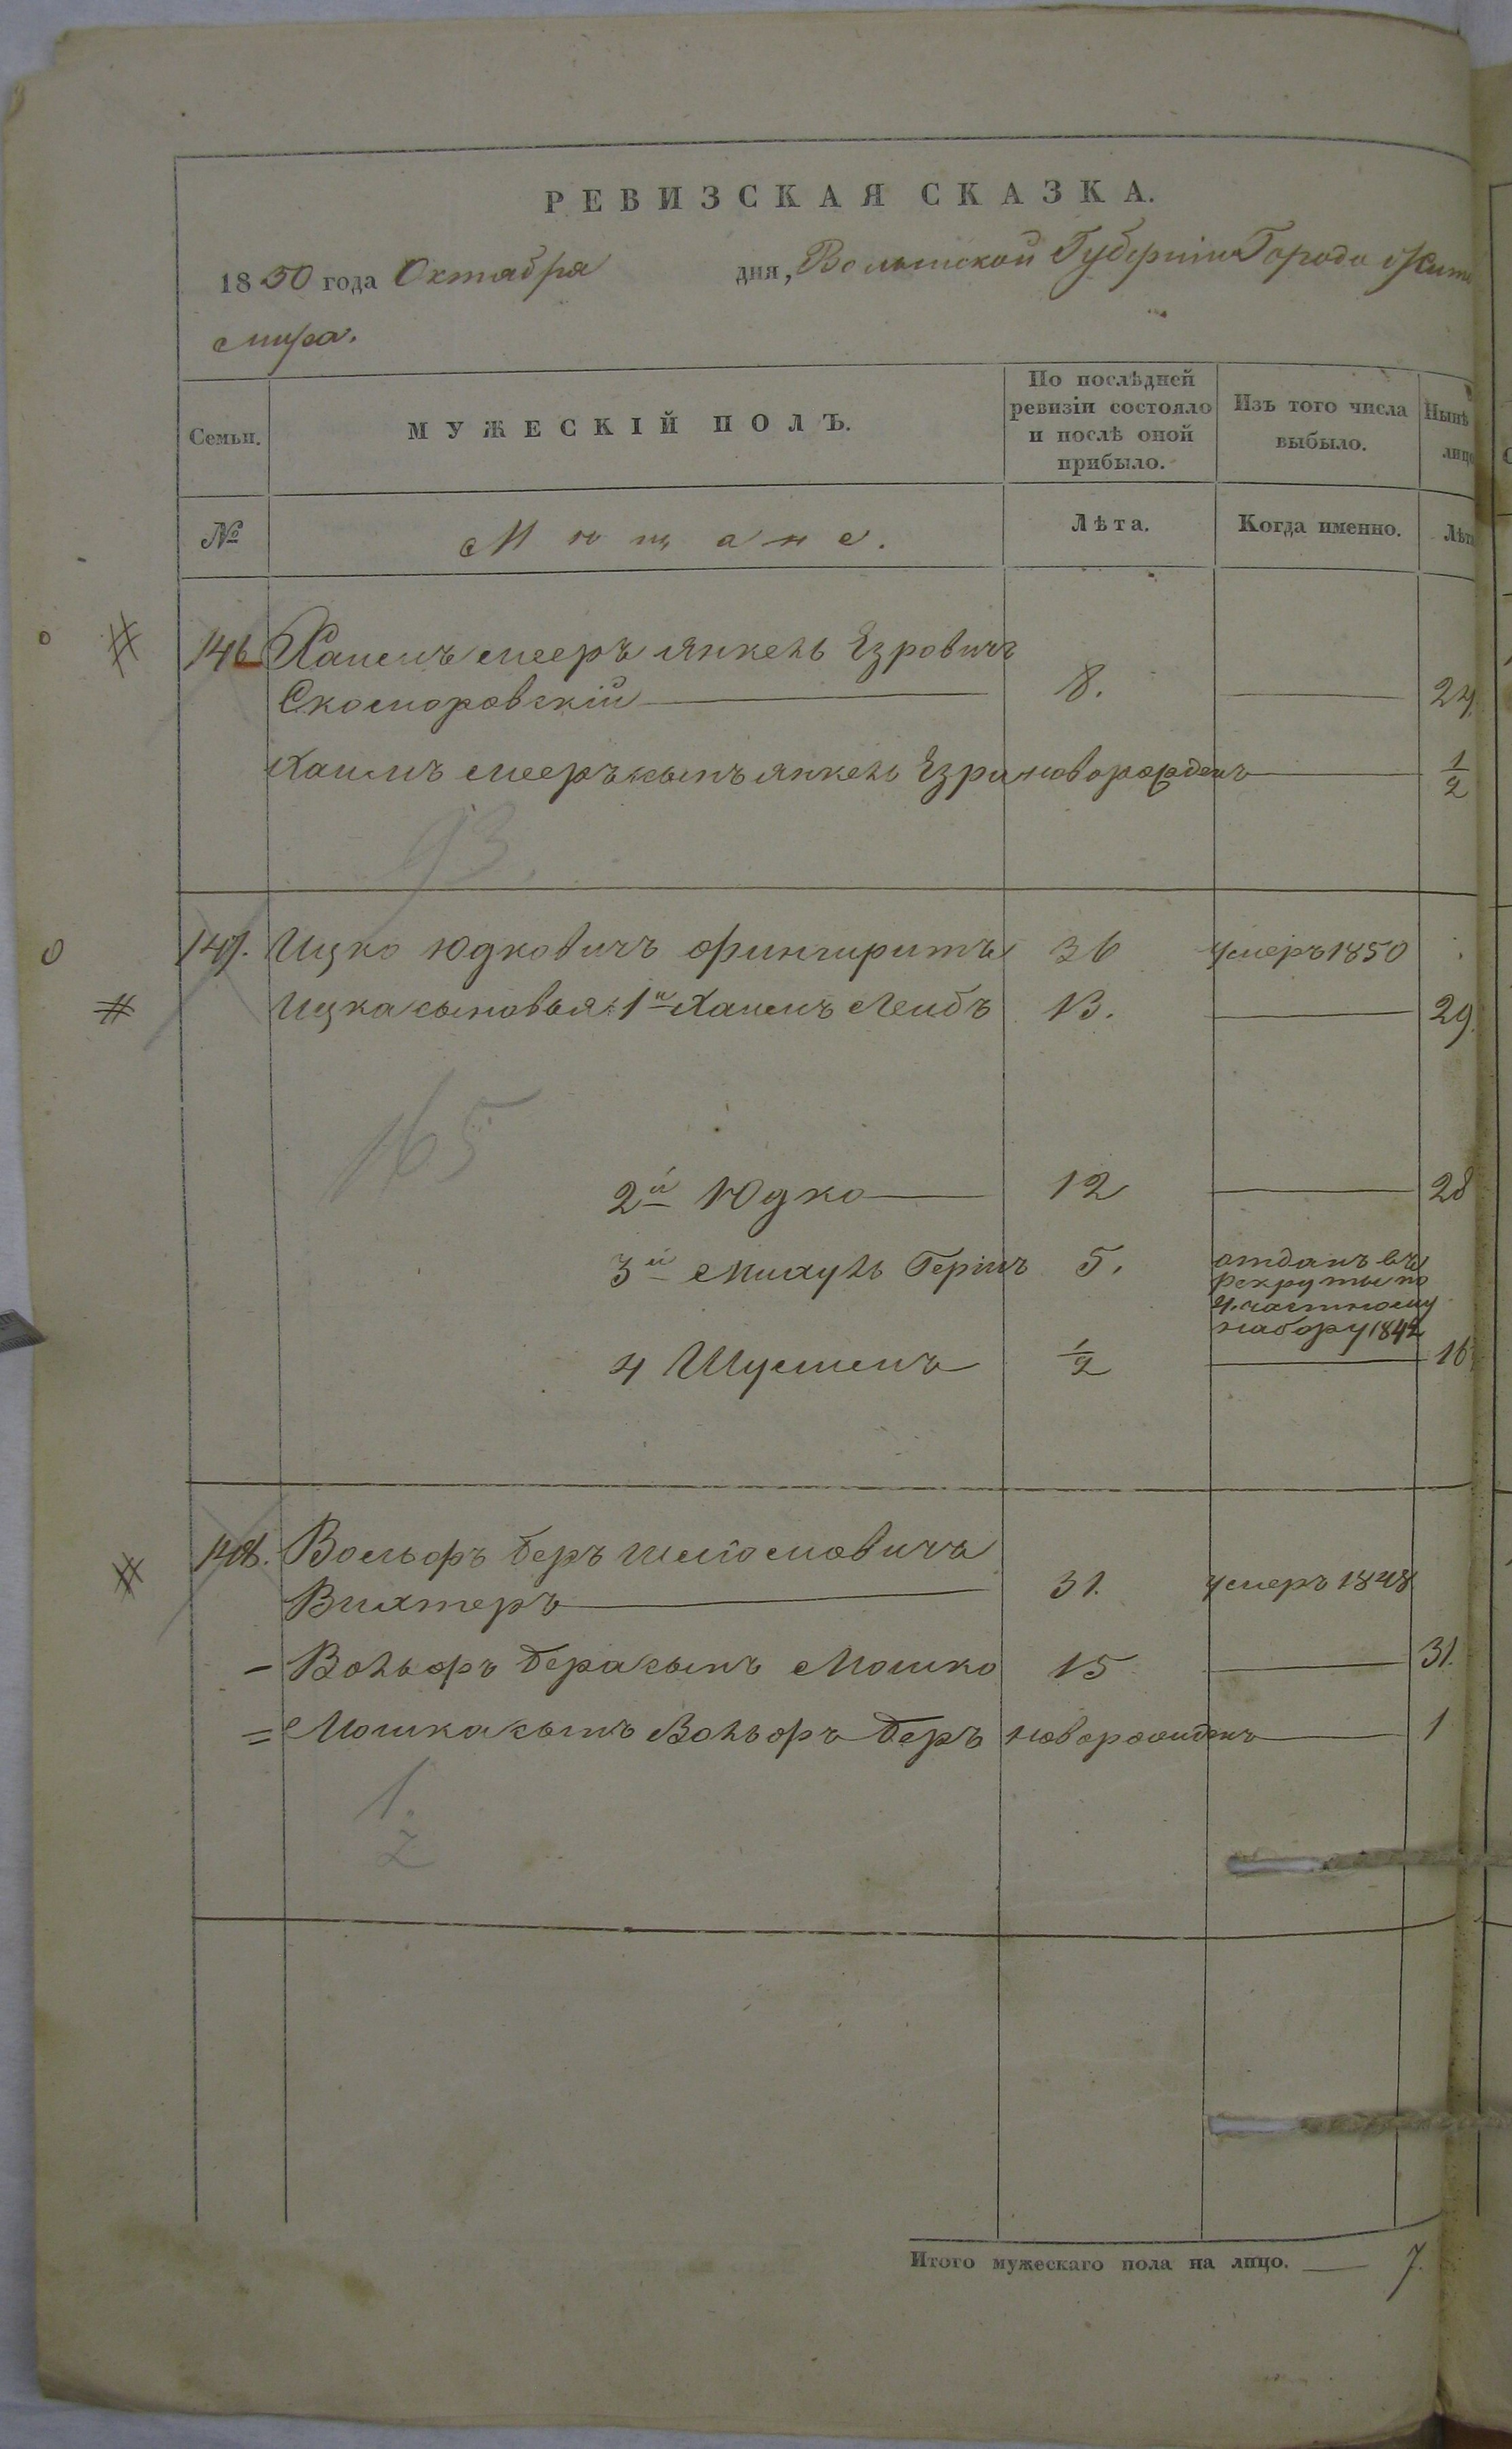 РЕВИЗСКАЯ СКАЗКА.
1850 года Октября дня, Волынской Губерніи Города Жито
мира.
Семьи. МУЖЕСКІЙ ПОЛЪ. По послѣдней ревизіи состояло и послѣ оной прибыло. Изъ того числа выбыло. Нынѣ лицо
№ Мѣщане. Лѣта. Когда именно. Лѣта
146 Хаимъ Мееръ Янкель Езровичъ
Скоморовскій 8. 24
Хаимъ Мееръ сынъ Янкель Езра новорожденъ 1/2
93.
147. Ицко Юдковичъ Фингиритъ 36 умеръ 1850
Ицка сыновья: 1й Хаимъ Лейбъ 13. 29.
165
2й Юдко 12 28
3й Михуль Гершъ 5. отданъ въ
рекруты по
ч. частному
набору 1842
4 Шулимъ 1/2 16
148. Вольфъ Беръ Шлiомовичъ
Вихтеръ 31. умеръ 1848
Вольфъ Бера сынъ Мошко 15 31.
Мошка сынъ Вольфъ Беръ новорожденъ 1
1.
2
Итого мужескаго пола на лицо. 7.